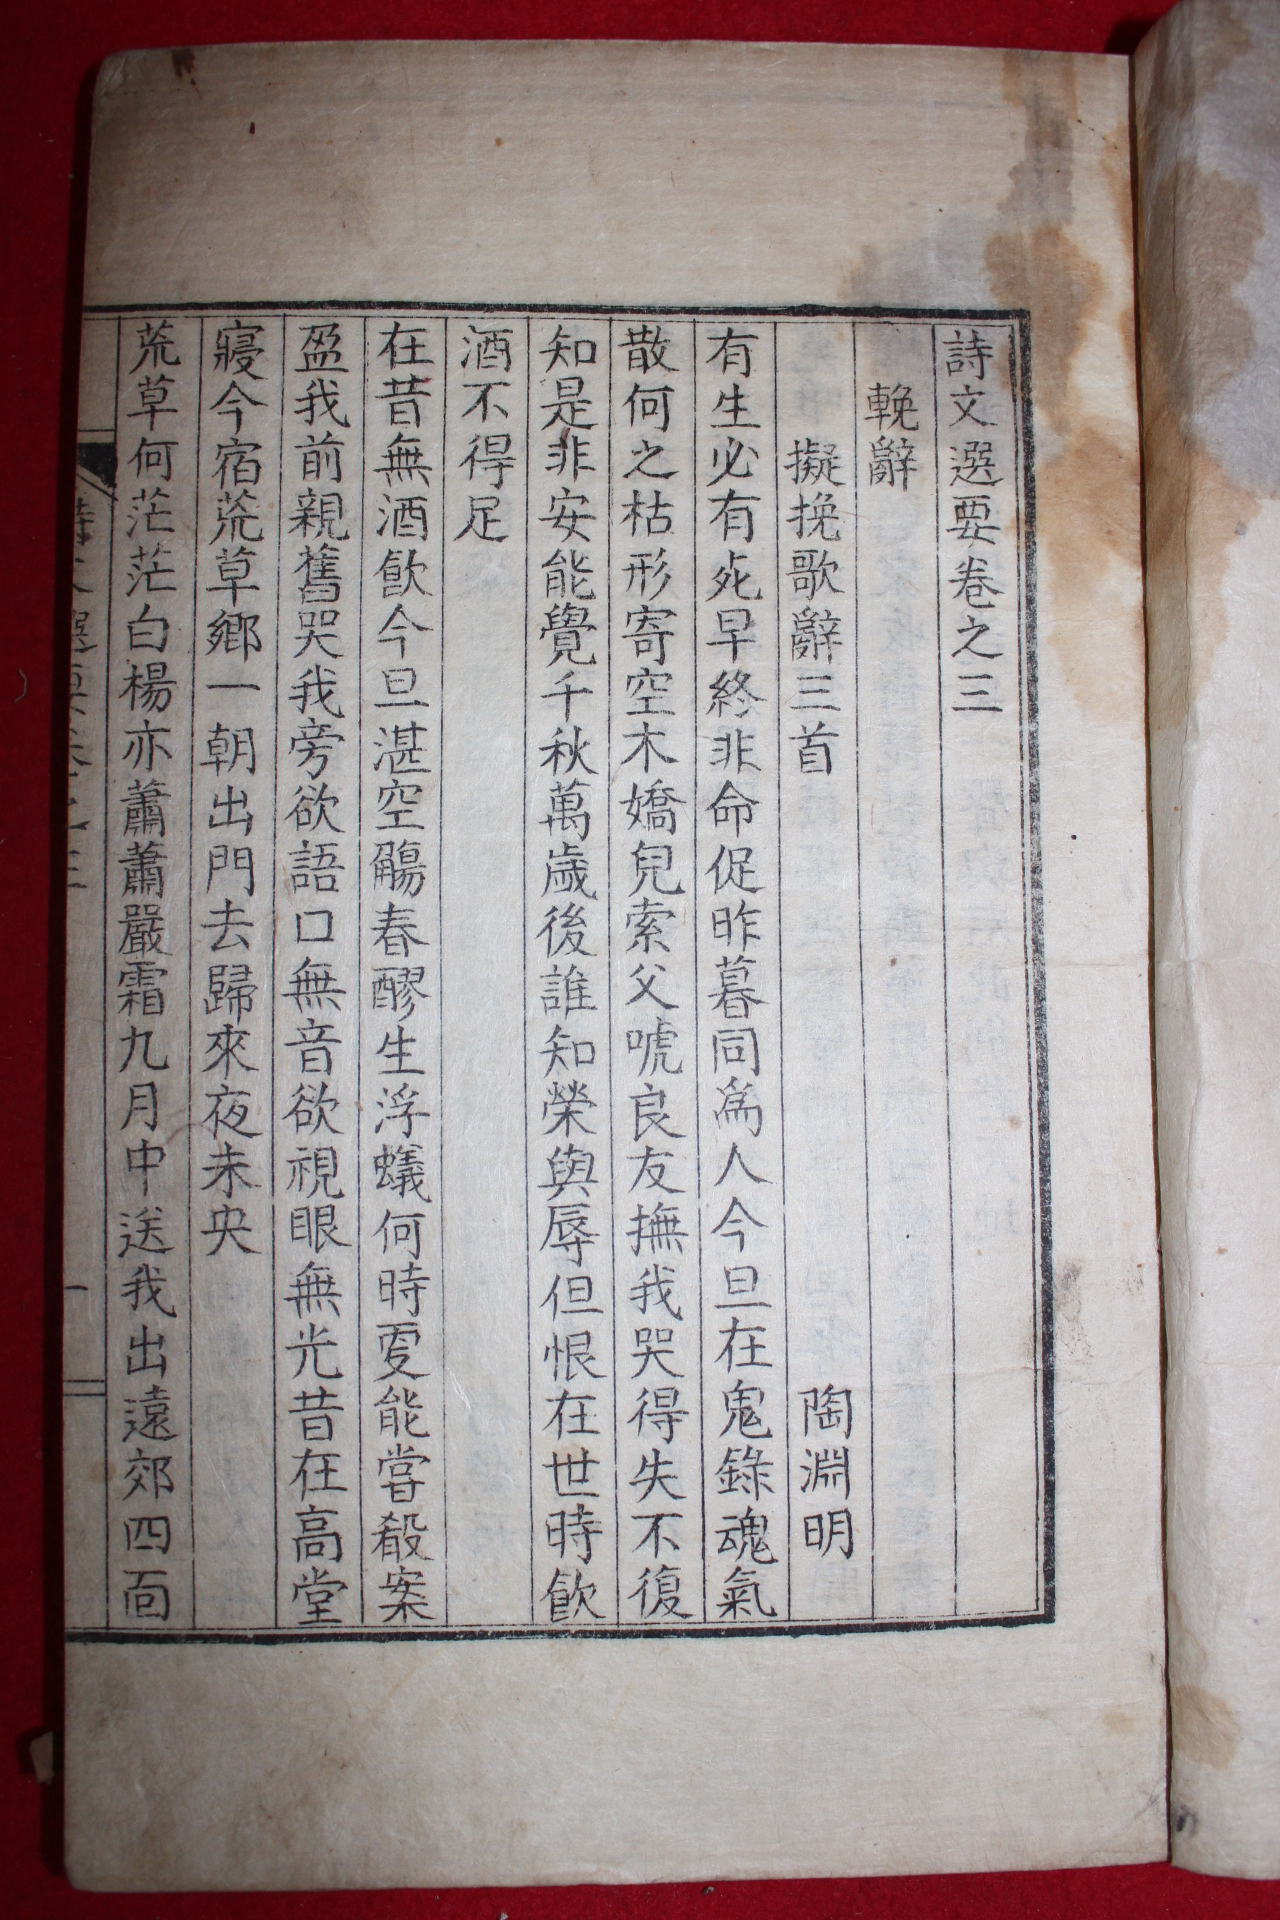 詩文選要卷之三
輓辭
擬挽歌辭三首 陶淵明
有生必有死早終非命促昨暮同爲人今旦在鬼錄魂氣
散何之枯形寄空木嬌兒索父唬良友撫我哭得失不復
知是非安能覺千秋萬歲後誰知榮與辱但恨在世時飮
酒不得足
在昔無酒飮今旦湛空觴春醪生浮蟻何時更能嘗殽案
盈我前親舊哭我旁欲語口無音欲視眼無光昔在高堂
寢今宿荒草鄉一朝出門去歸來夜未央
荒草何茫茫白楊亦蕭蕭嚴霜九月中送我出遠郊四面
詩文選要卷之三 一